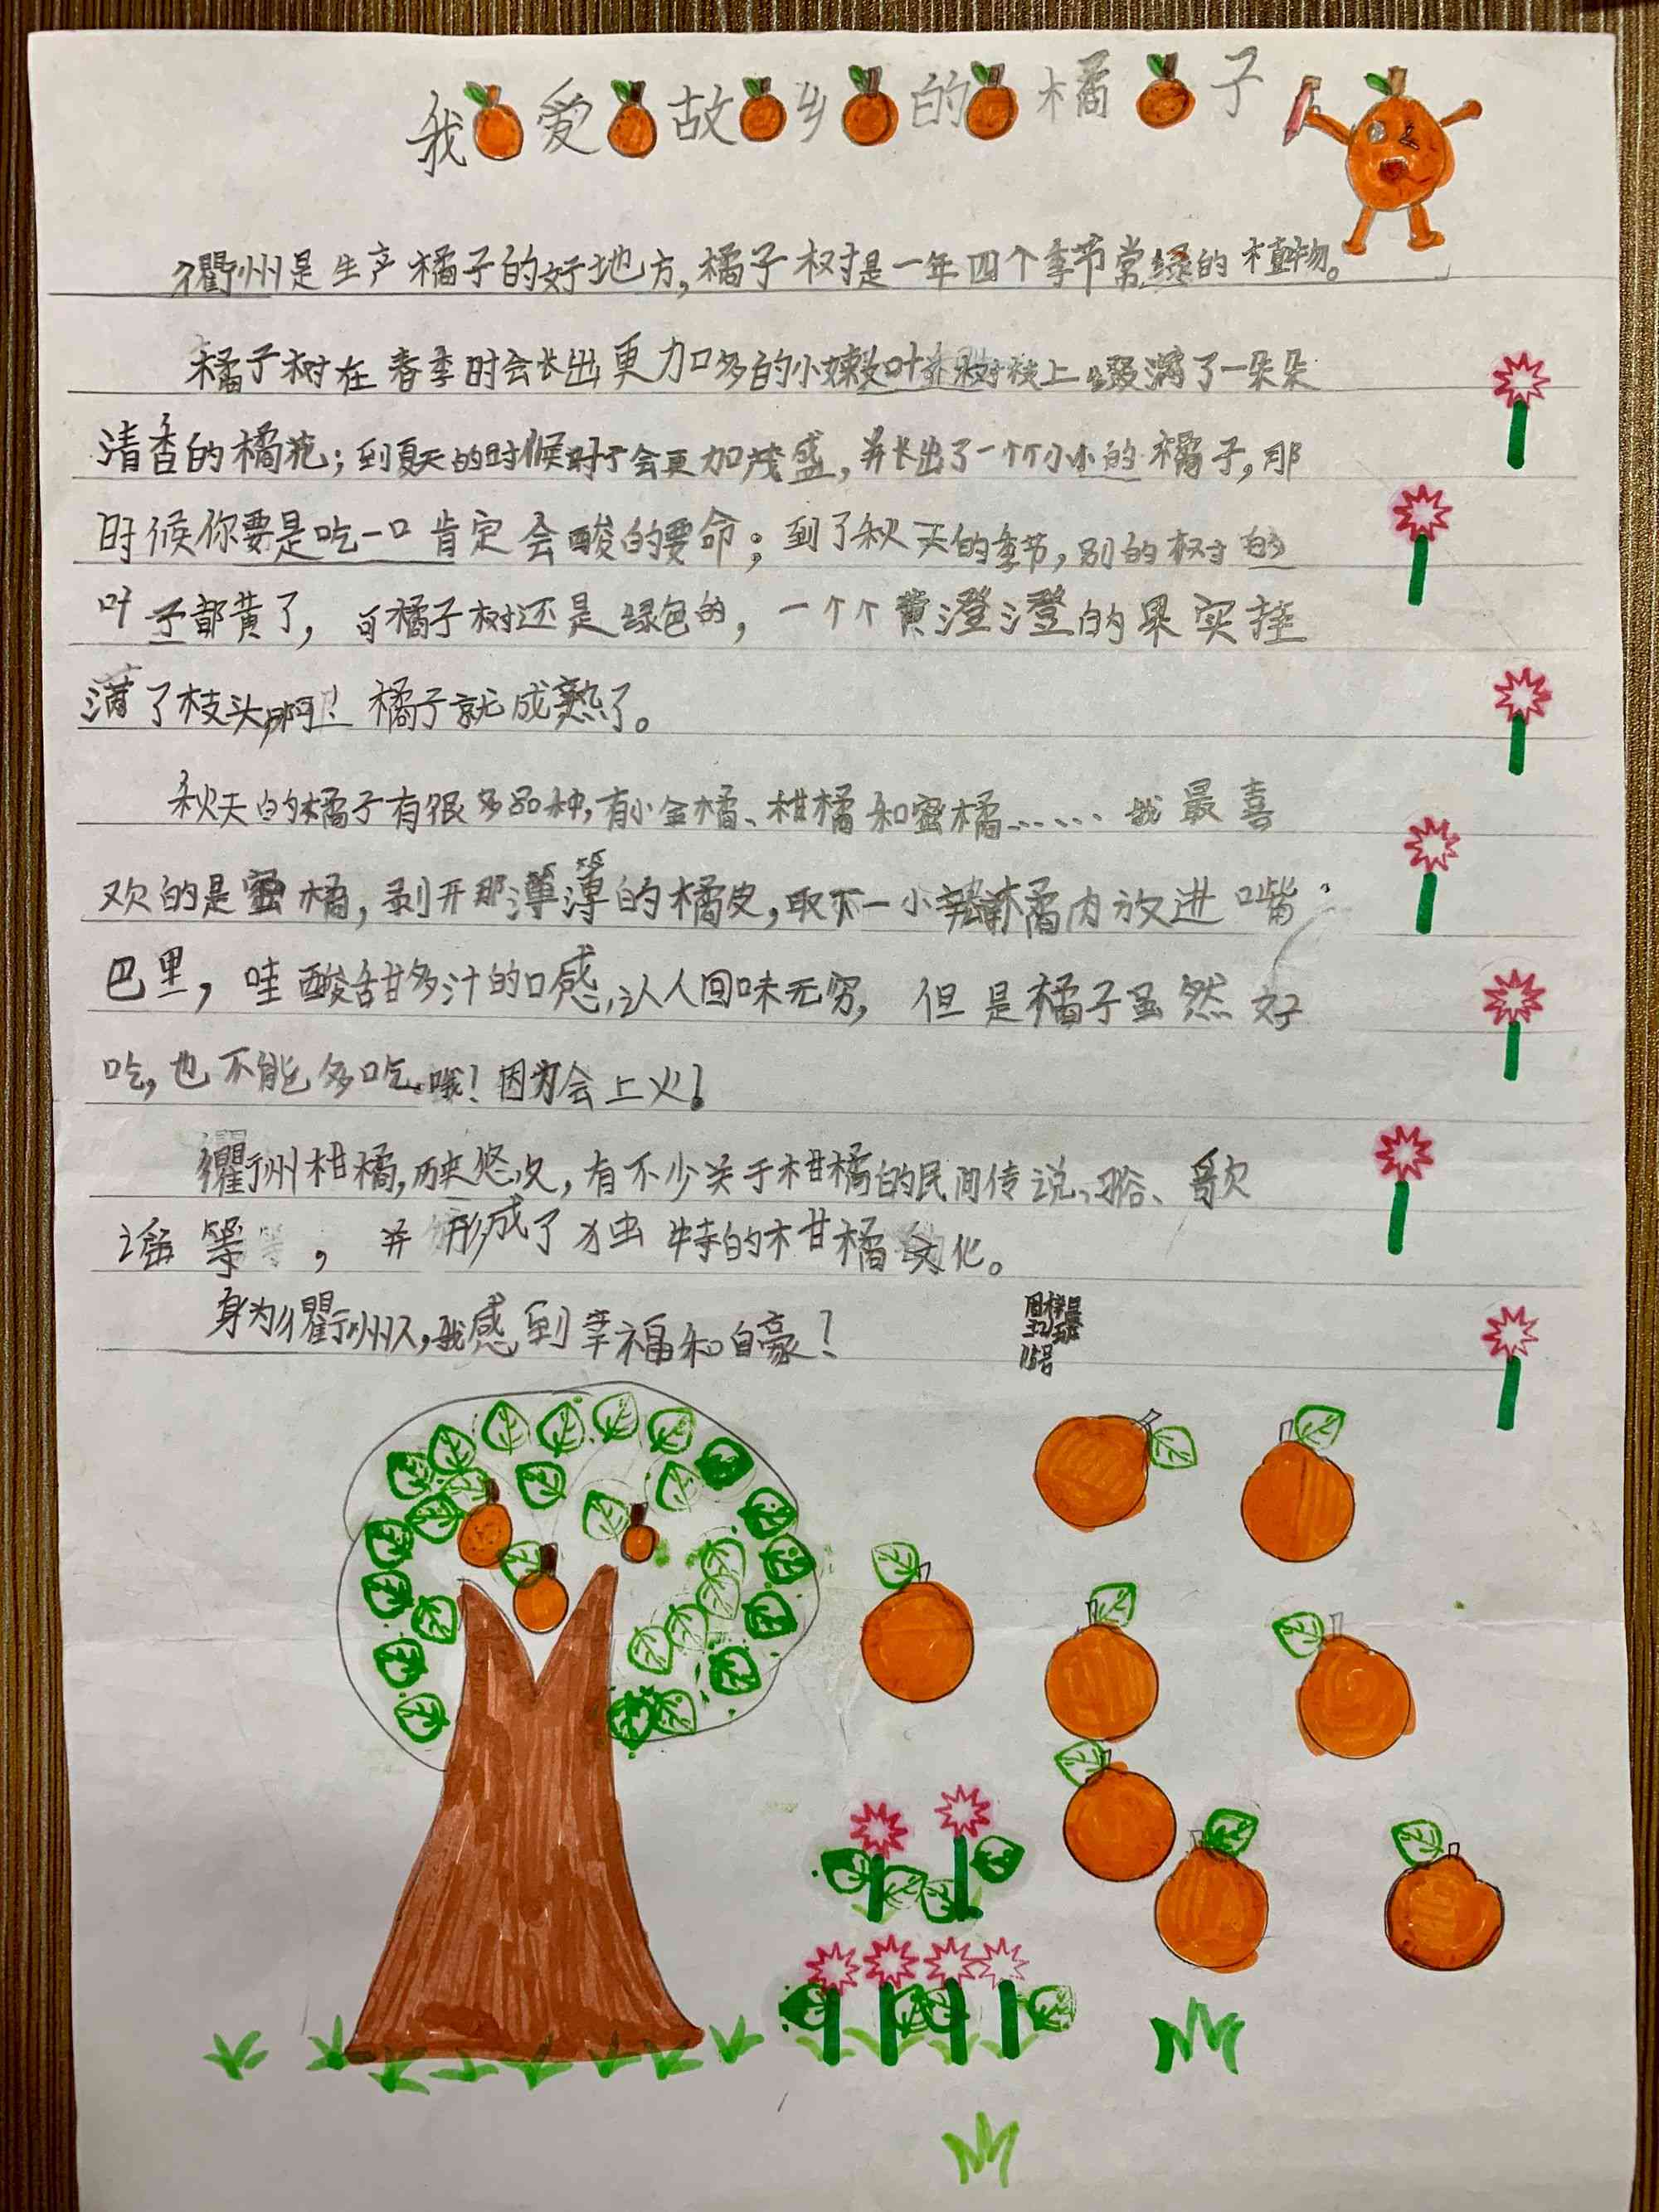 我爱故乡的橘子
衢州是生产橘子的好地方,橘子树是一年四个季节常绿的植物。
橘子树在春季时会长出更加多的小嫩叶并且树枝上缀满了一朵朵
清香的橘花;到夏天的时候叶子会更加茂盛,并长出了一个个小小的橘子,那
时候你要是吃一口肯定会酸的要命;到了秋天的季节,别的树的
叶子都黄了,可橘子树还是绿色的,一个个黄澄澄的果实挂
满了枝头,啊!橘子就成熟了。
秋天的橘子有很多品种,有小金橘、柑橘和蜜橘……我最喜
欢的是蜜橘,剥开那薄薄的橘皮,取下一小瓣橘肉放进嘴
巴里,哇酸甜多汁的口感,认人回味无穷,但是橘子虽然好
吃,也不能多吃哦!因为会上火!
衢州柑橘,历史悠久,有不少关于柑橘的民间传说、俗、歌
谣等,并形成了独特的柑橘文化。
身为衢州人,我感到幸福和自豪!
15号